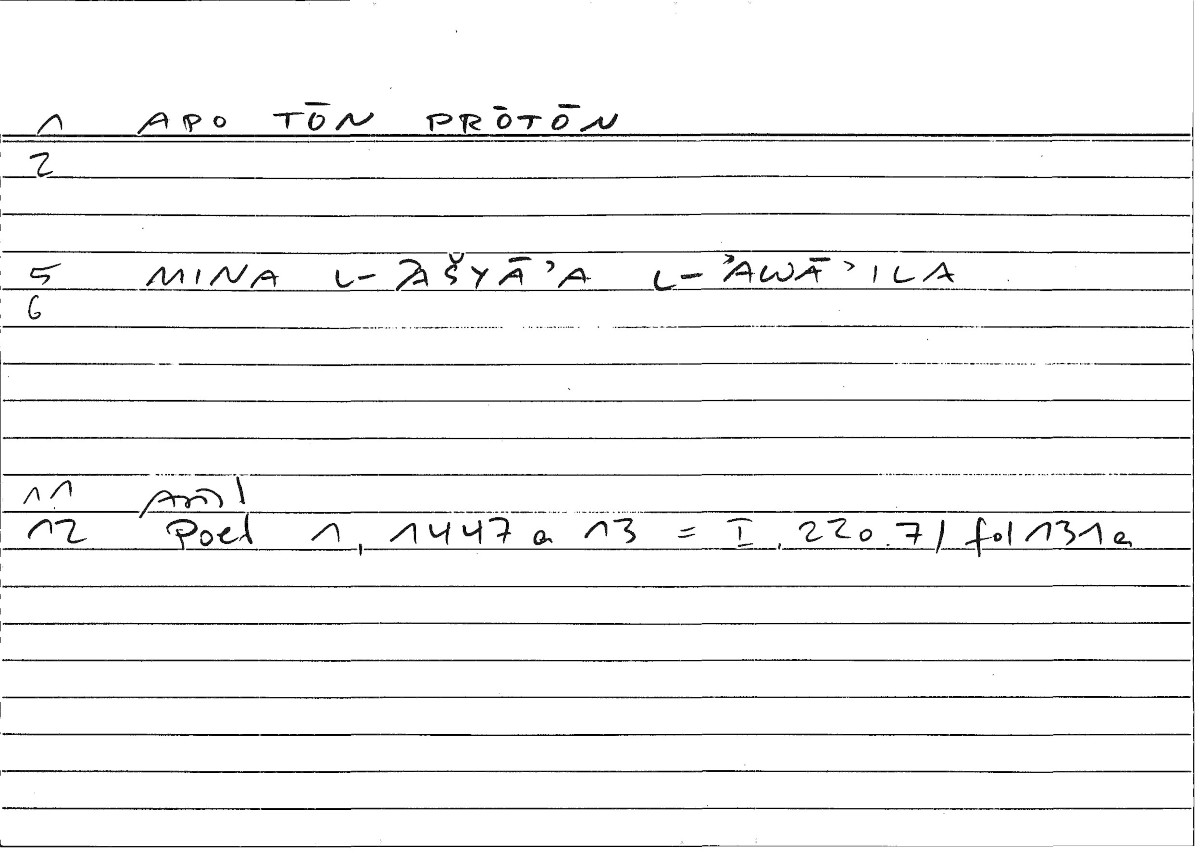 1 APO TŌN PRŌTŌN
2
5 MINA L-ʾAŠYĀʾA L-ʾAWĀʾILA
6
11
12 Poet 1, 1447 a 13 = I, 220.7 / fol 131a